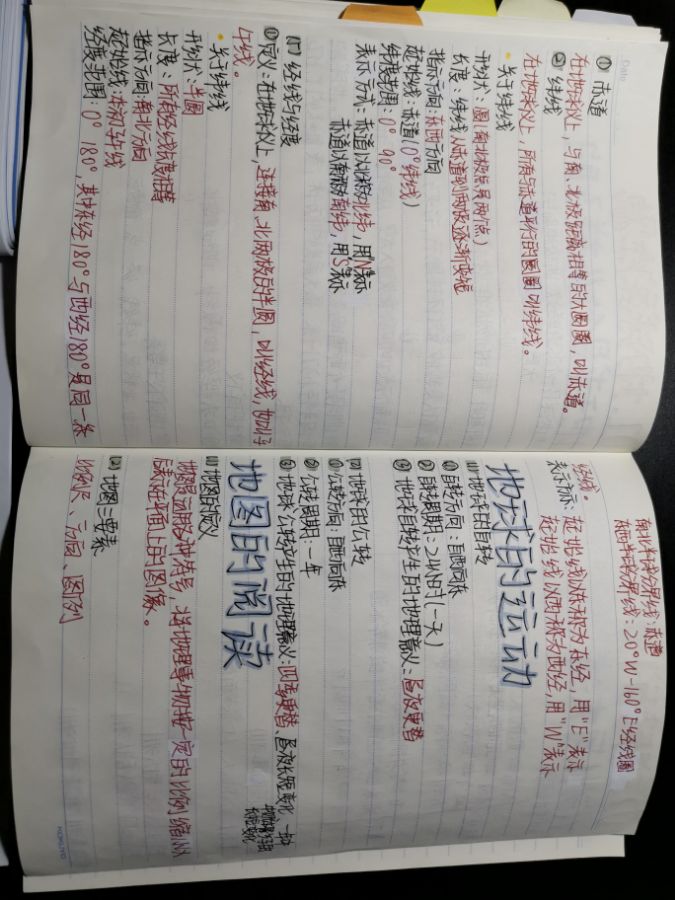 Date
① 赤道
在地球仪上,与南、北极距离相等的大圆圈,叫赤道。
② 纬线
在地球仪上,所有与赤道平行的圆圈叫纬线。
关于纬线
形状:圆(南北极点是两个点)
长度:纬线从赤道到两极逐渐变短
指示方向:东西方向
起始线:赤道(0°纬线)
纬度范围:0° 90°
表示方式:赤道以北称北纬,用"N"表示
赤道以南称南纬,用"S"表示
经线与经度
① 定义:在地球仪上,连接南、北两极的半圆,叫经线,也叫子
午线。
关于经线
形状:半圆
长度:所有经线长度相等
指示方向:南北方向
起始线:本初子午线
经度范围:0° 180°,其中东经180°与西经180°是同一条
南北半球分界线:赤道
东西半球分界线:20°W-160°E经线圈
经线。
表示方式:起始线以东称为东经,用"E"表示
起始线以西称为西经,用"W"表示
地球的运动
(1) 地球的自转
① 自转方向:自西向东
② 自转周期:24小时(一天)
③ 地球自转产生的地理意义:昼夜更替
地球的公转
① 公转方向:自西向东
② 公转周期:一年
③ 地球公转产生的地理意义:四季更替、昼夜长短变化
地图的阅读
(1) 地图的定义
地图是运用各种符号,将地理事物按一定的比例缩小以后表达在平面上的图像。
(2) 地图三要素
比例尺、方向、图例
KOKUYO